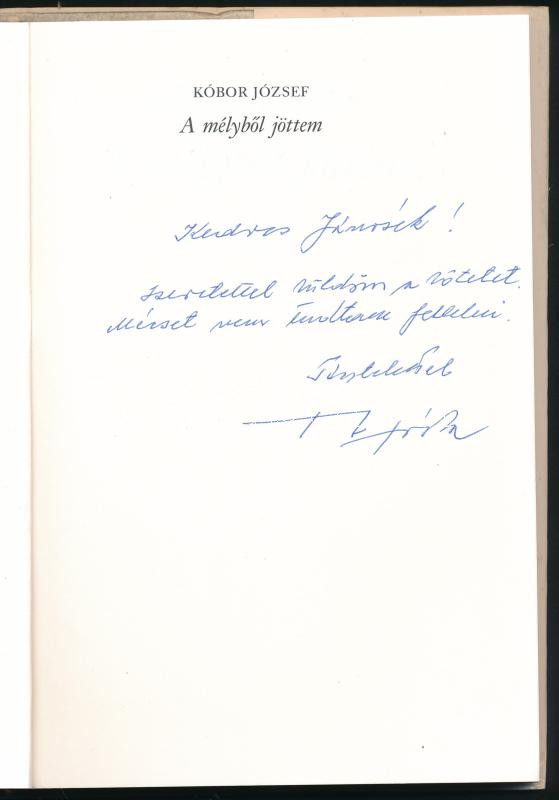 KÓBOR JÓZSEF
A mélyből jöttem
Kedves Jánosék!
Szeretettel küldöm a kötetet.
nem tudtam
Tisztelettel